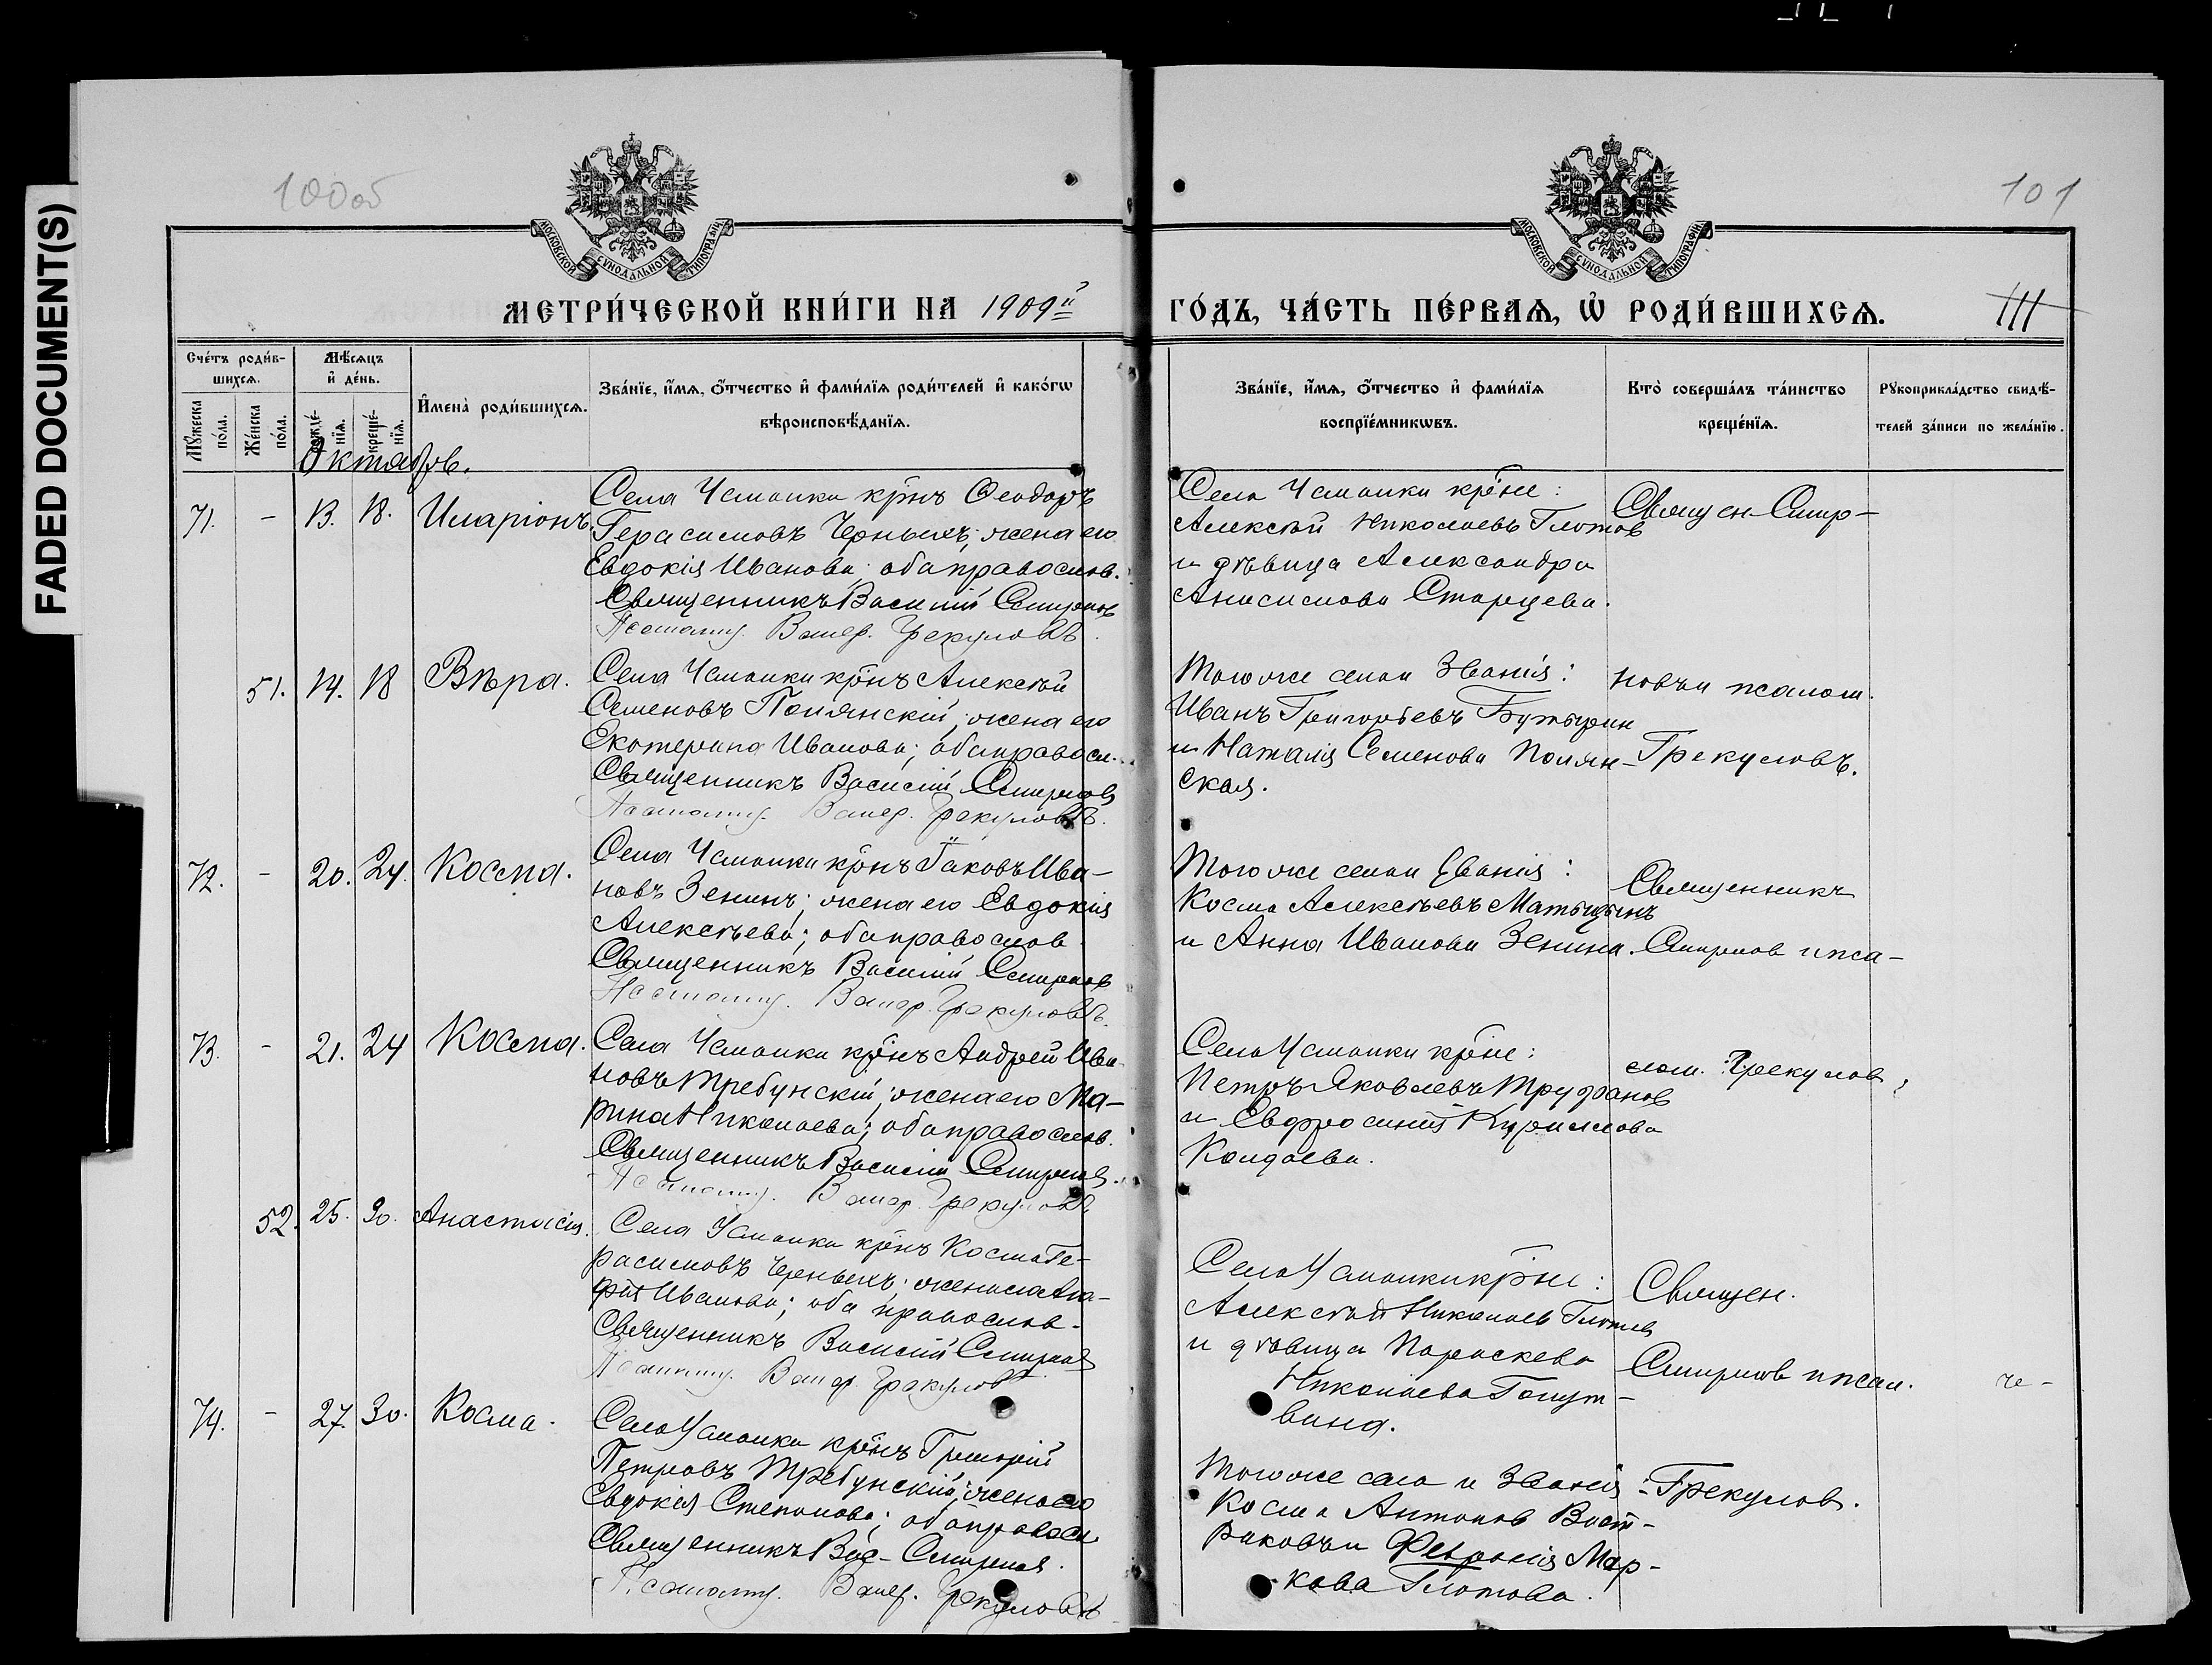 FADED DOCUMENT(S)
100об
101
МОСКОВСКОЙ СѴНОДАЛЬНОЙ ТИПОГРАФІИ
МОСКОВСКОЙ СѴНОДАЛЬНОЙ ТИПОГРАФІИ
МЕТРИ́ЧЕСКОЙ КНИ́ГИ НА 1909й
ГО́ДЪ, ЧА́СТЬ ПЕ́РВАѦ, Ѡ҆ РОДИ́ВШИХСѦ.
III
Сче́тъ роди́в-
шихсѧ.
Мѣ́сѧцъ
и҆ де́нь.
И҆мена̀ роди́вшихсѧ.
Зва́нїе, и҆́мѧ, ѻ҆́тчество и҆ фами́лїѧ роди́телей и҆ како́гѡ
вѣроисповѣ́данїѧ.
Мꙋ́жеска
по́ла.
Же́нска
по́ла.
рожде́-
нїѧ.
креще́-
нїѧ.
Зва́нїе, и҆́мѧ, ѻ҆́тчество и҆ фами́лїѧ
воспрїе́мникѡвъ.
Кто̀ соверша́лъ та́инство
креще́нїѧ.
Рꙋкоприкла́дство свидѣ́-
телей за́писи по жела́нїю.
Октябрь.
71. - 13. 18. Иларіонъ.
Села Усманки крнъ Ѳеодоръ
Герасимовъ Черныхъ; жена его
Евдокія Иванова; оба православ.
Священникъ Василій Смирнов
Псаломщ. Валер. Грекуловъ.
Села Усманки крне:
Алексѣй Николаевъ Глотов
и дѣвица Александра
Анисимова Старцева.
Священ. Смир-
51. 14. 18 Вѣра.
Села Усманки крнъ Алексѣй
Семеновъ Полянскій; жена его
Екатерина Иванова; оба правосл.
Священникъ Василій Смирновъ
Псаломщ. Валер. Грекуловъ.
Того же села и званія:
Иванъ Григорьевъ Бутырин
и Наталія Семенова Полян-
ская.
новъ и псалом.
Грекуловъ.
72. - 20. 24. Косма.
Села Усманки крнъ Іаковъ Ива-
новъ Зенинъ; жена его Евдокія
Алексѣева; оба православ.
Священникъ Василій Смирнов
Псаломщ. Валер. Грекуловъ.
Того же села и званія:
Косма Алексѣевъ Матыцынъ
и Анна Иванова Зенина.
Священникъ
Смирнов и пса-
73. - 21. 24 Косма.
Села Усманки крнъ Андрей Ива-
новъ Требунскій; жена его Ма-
рина Николаева; оба православ.
Священникъ Василій Смирнов.
Псаломщ. Валер. Грекуловъ
Села Усманки крне:
Петръ Яковлевъ Труфанов
и Евфросинія Кириллова
Колдаева.
лом. Грекулов
52. 25. 30. Анастасія.
Села Усманки крнъ Косма Ге-
расимовъ Черныхъ; жена его
Иванова; оба православ.
Священникъ Василій Смирнов
Псаломщ. Валер. Грекулов
Села Усманки крне:
Алексѣй Николаев Глотов
и дѣвица Параскева
Николаева Голут-
вина.
Священ.
Смирнов и псал.
че-
74. - 27. 30. Косма.
Села Усманки крнъ Григорій
Петровъ Требунскій; жена его
Евдокія Степанова; оба правосл
Священникъ Вас. Смирнов.
Псаломщ. Валер. Грекуловъ
Того же села и званія:
Косма Антонов Вост-
риковъ и Февронія Мар-
кова Глотова.
Грекулов.